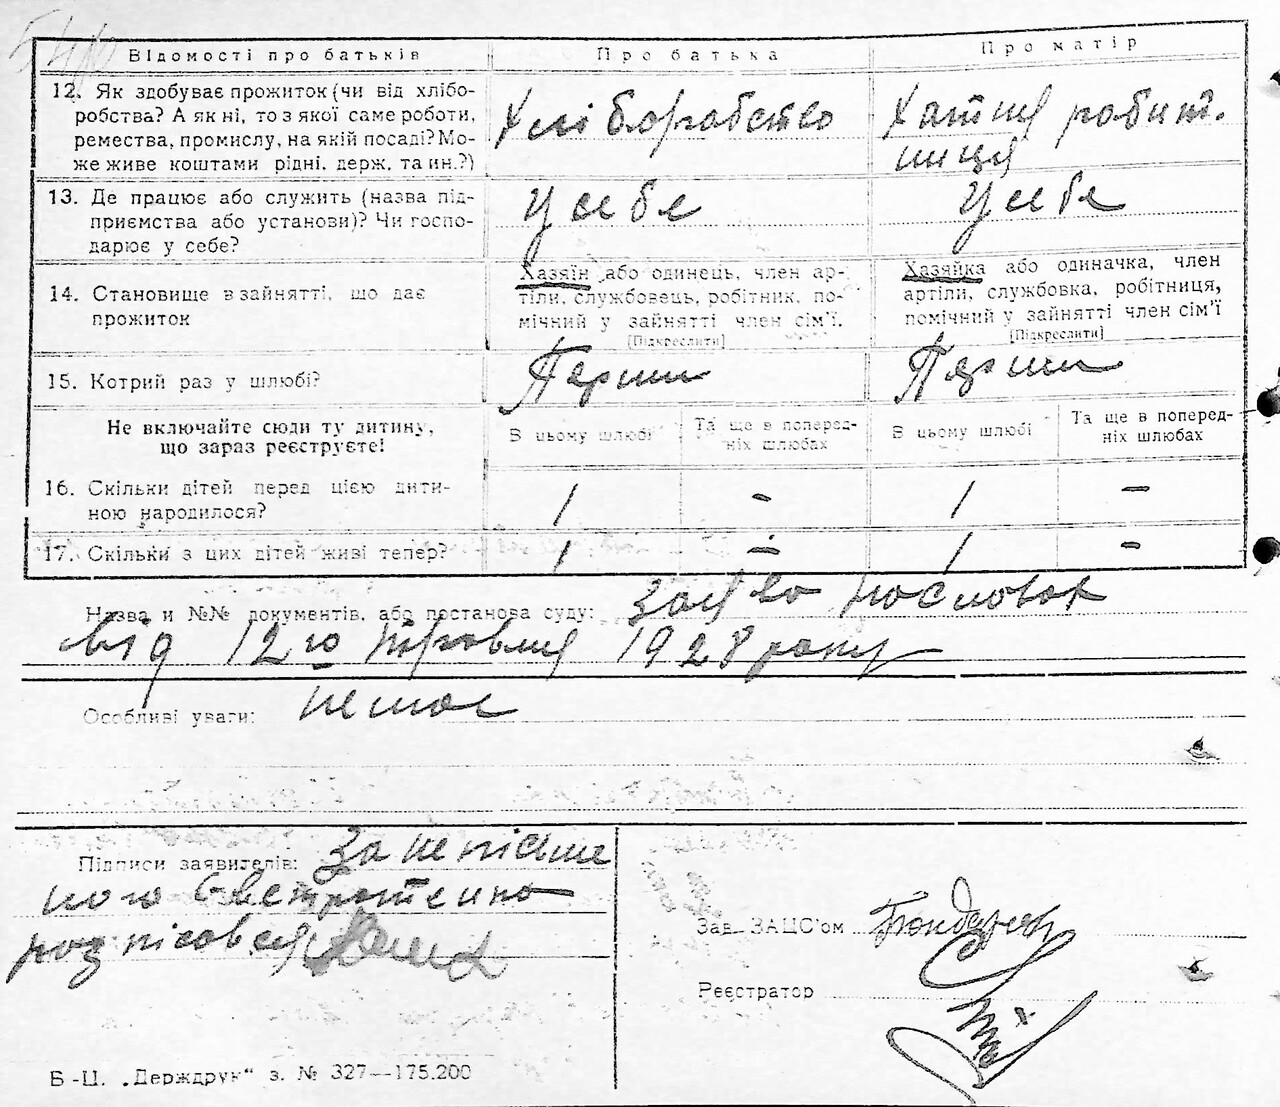 Відомості про батьків
Про батька
Про матір
12. Як здобуває прожиток (чи від хлібо-
робства? А як ні, то з якої саме роботи,
ремества, промислу, на якій посаді? Мо-
же живе коштами рідні, держ. та ин.?)
Хліборобство
Хатня робит.
ниця
13. Де працює або служить (назва під-
приємства або установи)? Чи госпо-
дарює у себе?
У себе
У себе
14. Становище в зайнятті, що дає
прожиток
Хазяїн або одинець, член ар-
тіли, службовець, робітник, по-
мічний у зайнятті член сім'ї.
[Підкреслити]
Хазяйка або одиначка, член
артіли, службовка, робітниця,
помічний у зайнятті член сім'ї
[Підкреслити]
15. Котрий раз у шлюбі?
Перший
Перший
Не включайте сюди ту дитину,
що зараз реєструєте!
В цьому шлюбі
Та ще в поперед-
ніх шлюбах
В цьому шлюбі
Та ще в поперед-
ніх шлюбах
16. Скільки дітей перед цією дити-
ною народилося?
1
-
1
-
17. Скільки з цих дітей живі тепер?
1
-
1
-
Назва и №№ документів, або постанова суду:
від 12го травня 1928 року
Особливі уваги: немає
Підписи заявителів: За неписьме
ного
розписовся
Зав. ЗАЦС'ом
Реєстратор
Б-Ц. „Держдрук“ з. № 327—175.200